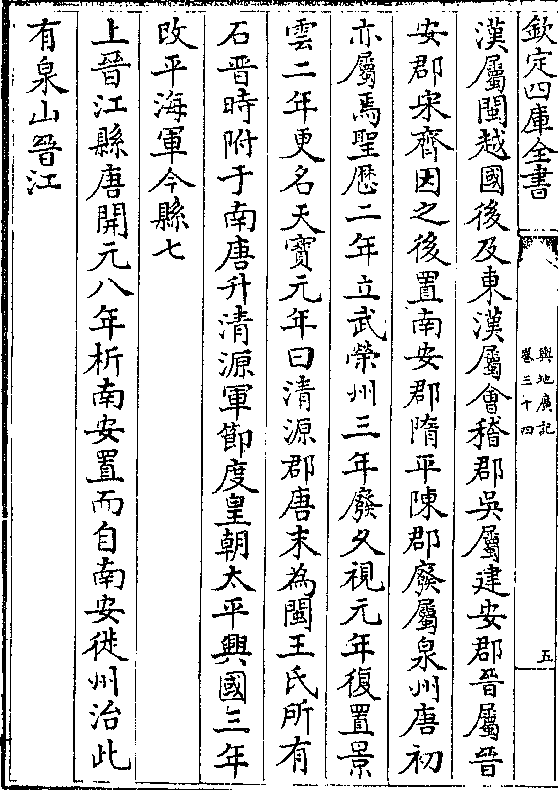 欽定四庫全書
輿地廣記
卷三十四
五
漢屬閩越國後及東漢屬會稽郡吳屬建安郡晉屬晉
安郡宋齊因之後置南安郡隋平陳郡廢屬泉州唐初
亦屬焉聖厯二年立武榮州三年廢久視元年復置景
雲二年更名天寶元年曰清源郡唐末為閩王氏所有
石晉時附于南唐升清源軍節度皇朝太平興國三年
改平海軍今縣七
上晉江縣唐開元八年析南安置而自南安徙州治此
有泉山晉江